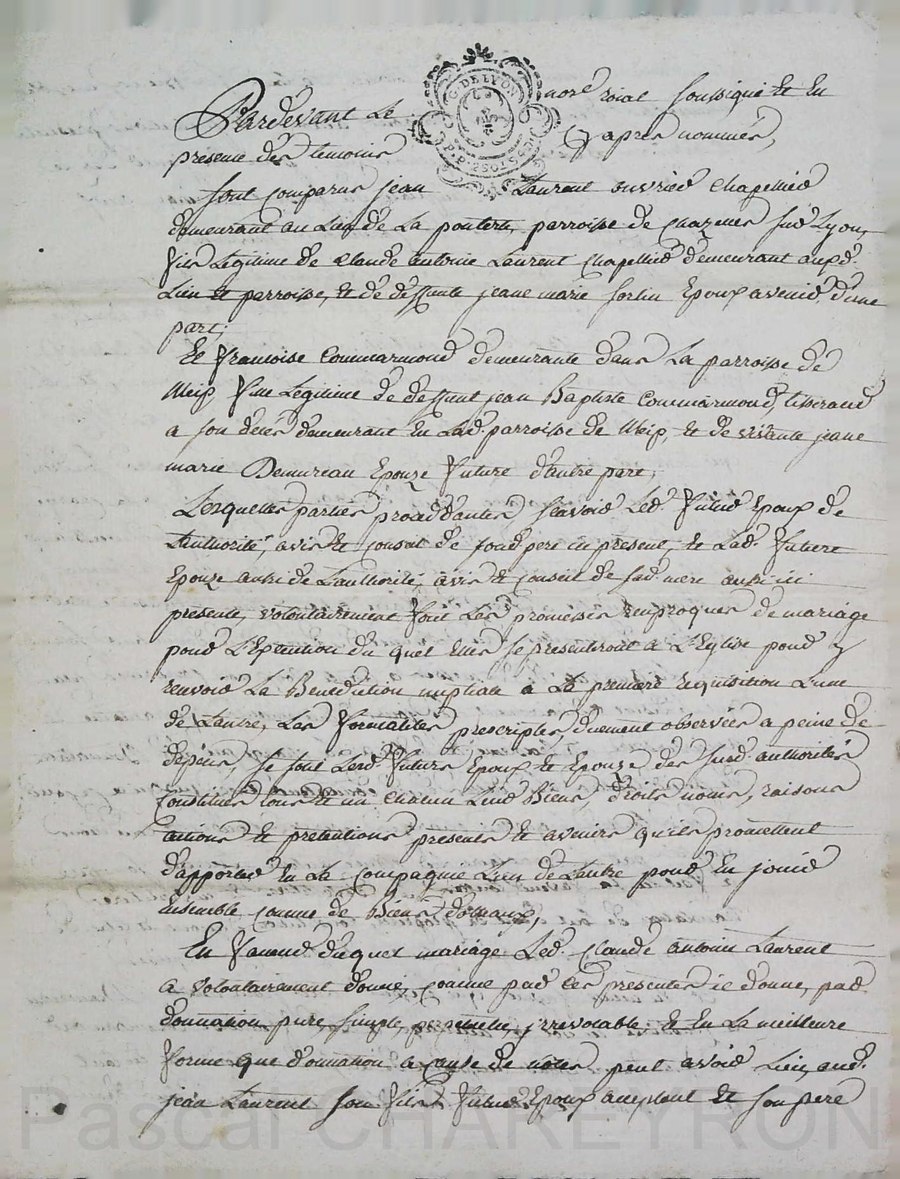 Pardevant Le nore roial soussigné et en
presence des temoins cy apres nommés,
G. DE LYON
P.P. 2 SOLS 8D
sont comparus jean Laurent ouvrier chapellier
demeurant au Lieu de La parroisse de sur Lyon,
fils Legitime de Claude antoine Laurent chapellier demeurant auxd.
Lieu et parroisse, et de deffunte jeane marie fortin Epoux avenir d'une
part;
Et francoise Commarmond demeurante dans La parroisse de
Meis fille Legitime de deffunt jean Baptiste Commarmond, tisserand
a son deces demeurant en Lad. parroisse de Meis, et de vivante jeane
marie Demureau Epouze future d'autre part,
Lesquelles parties procédantes sçavoir Led. futur Epoux de
L'authorité, avis et conseil de sond. pere icy present, et Lad. future
Epouze aussi de L'authorité, avis et conseil de sad. mere aussi ici
presente, volontairement font Les promesses reciproques de mariage
pour L'Exécution du quel Elles se presenteront a L'Eglise pour y
recevoir La Benediction nuptiale a La premiere requisition L'une
de L'autre, Les formalités prescriptes duement observées a peine de
dépens, se sont Lesd. futurs Epoux et Epouze des susd. authorités
constitués tous et un chacun Leurs Biens, droits noms, raisons
actions et pretentions presents et avenirs qu'ils promettent
d'apporter En La Compagnie L'un de L'autre pour En jouir
Ensemble comme de Biens dotaux,
En faveur duquel mariage Led. Claude antoine Laurent
a volontairement donné, comme par ces presentes il donne, par
donnation pure, simple, perpetuelle, irrevocable et En La meilleure
forme que donnation a cause de noces peut avoir Lieu, aud.
jean Laurent son fils futur Epoux acceptant de son pere
Pascal CHAREYRON